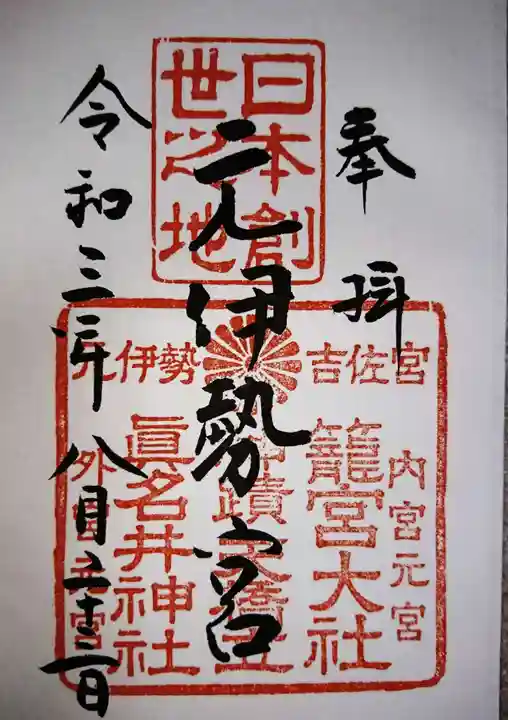 奉拝
日本創世之地
元伊勢宮
令和三年八月二十二日
吉佐宮
内宮元宮
籠宮大社
元伊勢
眞名井神社